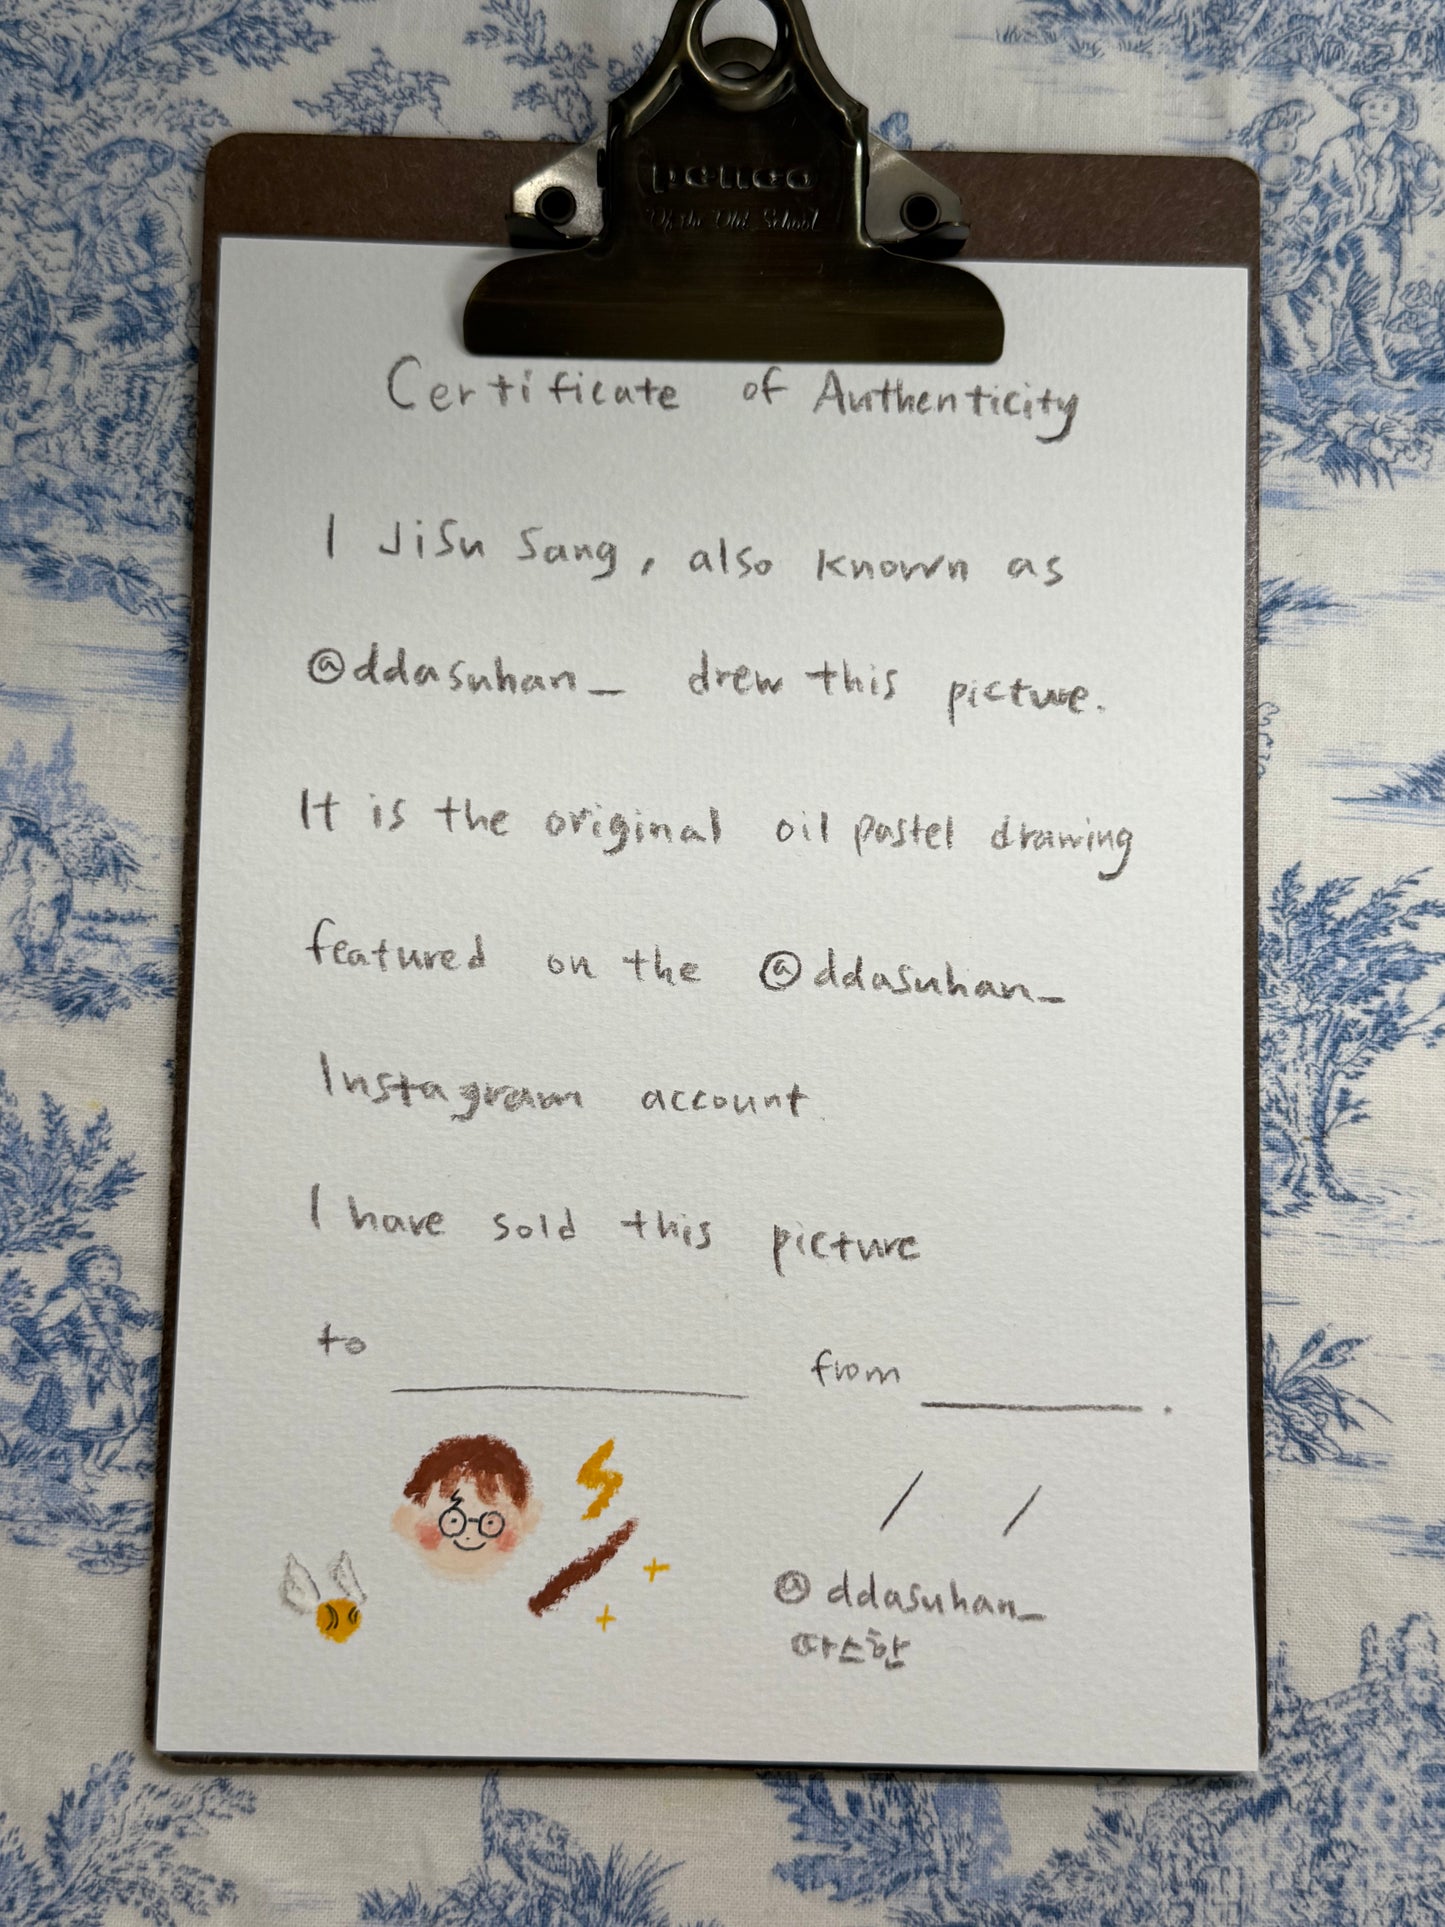 penco
Certificate of Authenticity
I JiSu Sang, also known as
@ddasuhan_ drew this picture.
It is the original oil pastel drawing
featured on the @ddasuhan_
Instagram account.
I have sold this picture
to from .
/ /
@ddasuhan_
따스한